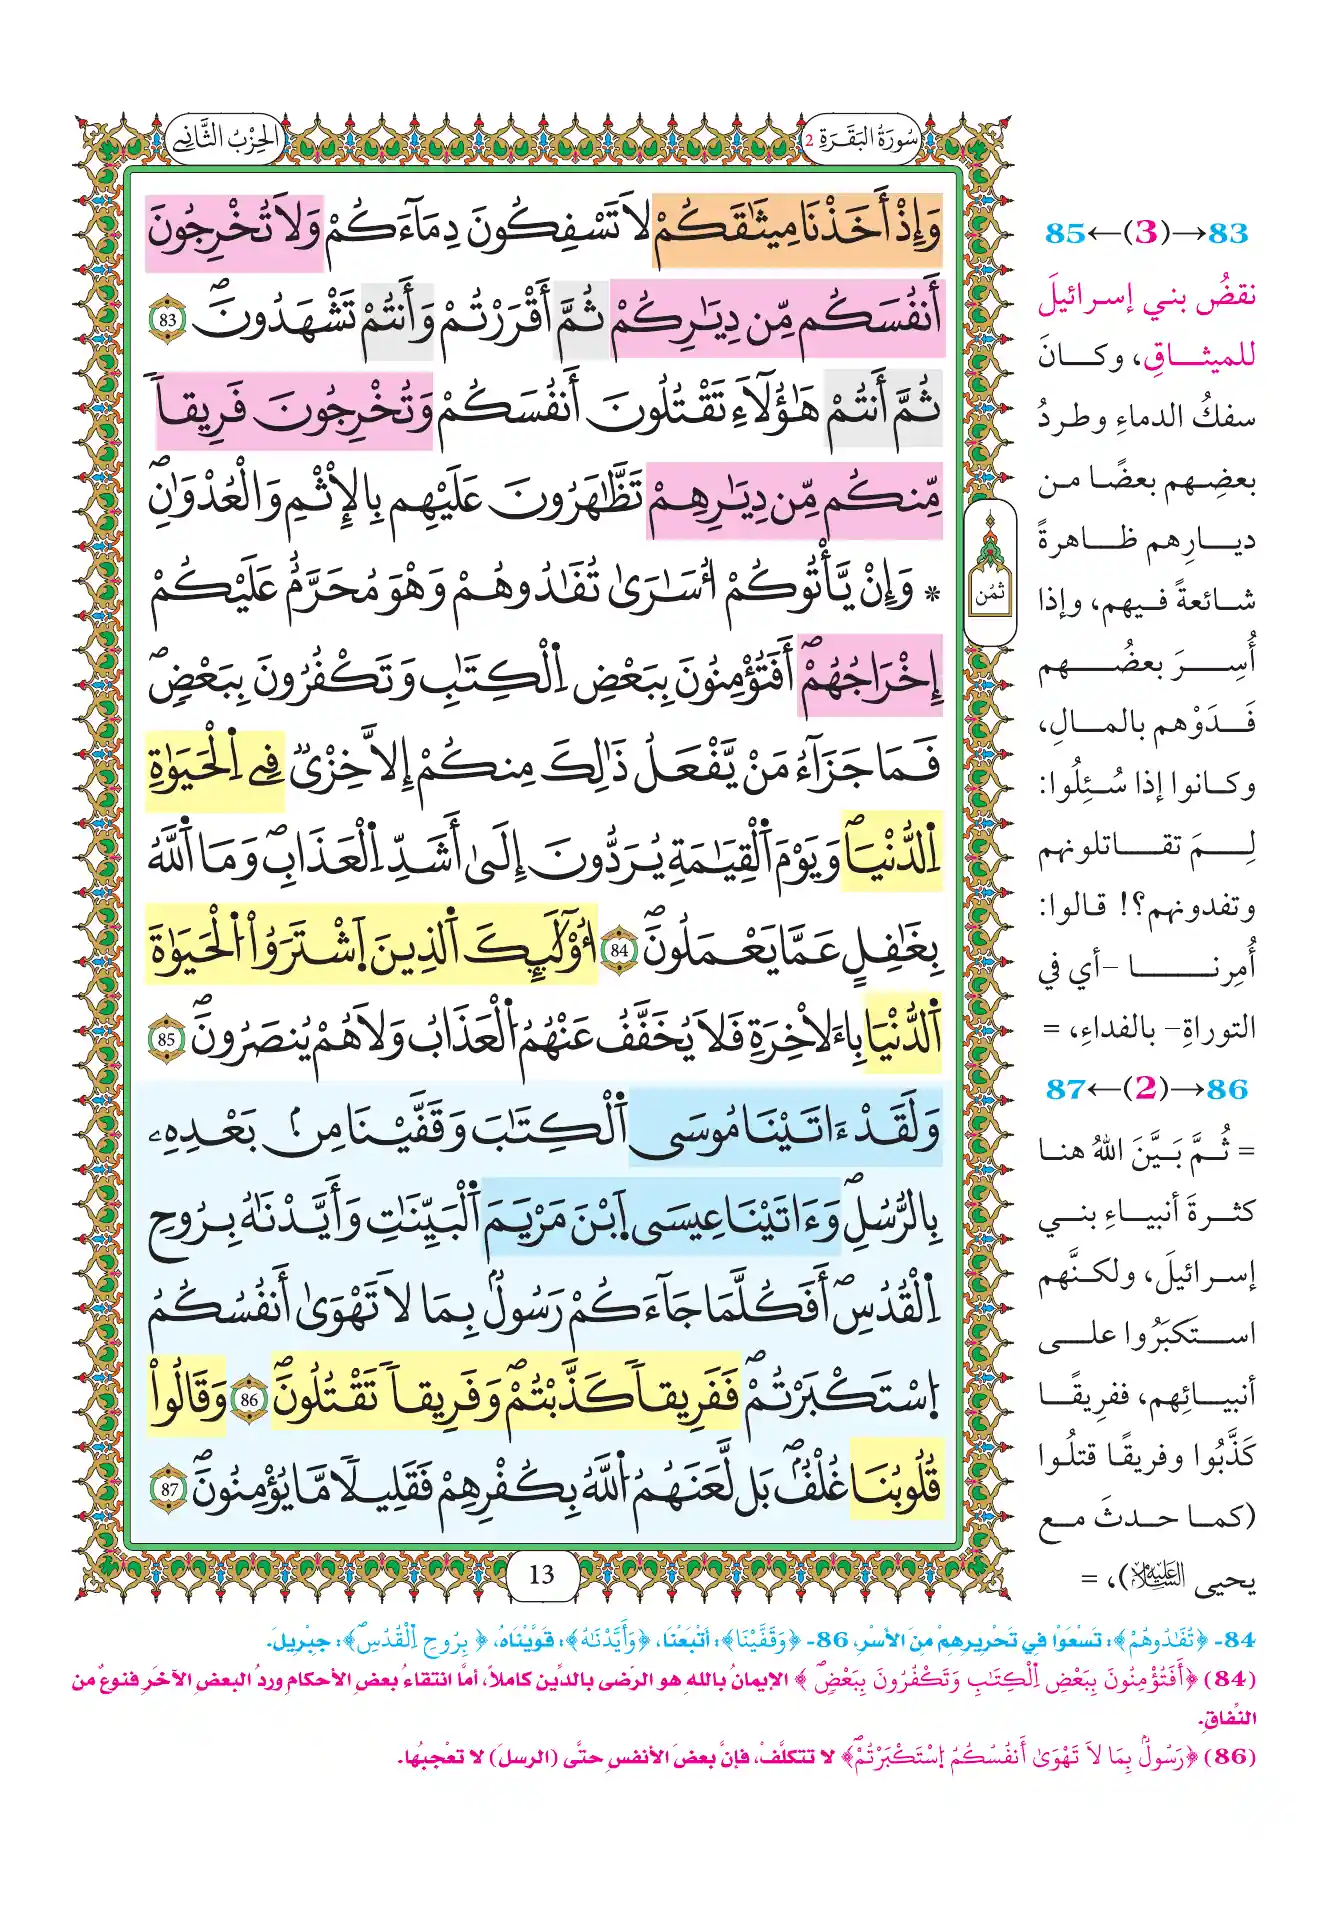 سُورَةُ البَقَرَةِ 2
الحِزْبُ الثَّانِي
وَإِذْ أَخَذْنَا مِيثَٰقَكُمْ لَا تَسْفِكُونَ دِمَآءَكُمْ وَلَا تُخْرِجُونَ
أَنفُسَكُم مِّن دِيَٰرِكُمْ ثُمَّ أَقْرَرْتُمْ وَأَنتُمْ تَشْهَدُونَۖ 83
ثُمَّ أَنتُمْ هَٰٓؤُلَآءِ تَقْتُلُونَ أَنفُسَكُمْ وَتُخْرِجُونَ فَرِيقاً
مِّنكُم مِّن دِيَٰرِهِمْ تَظَّٰهَرُونَ عَلَيْهِم بِالِاثْمِ وَالْعُدْوَٰنِۖ
* وَإِنْ يَّأْتُوكُمْ أُسَٰرَىٰ تُفَٰدُوهُمْ وَهْوَ مُحَرَّمٌ عَلَيْكُمْ
إِخْرَاجُهُمْۖ أَفَتُؤْمِنُونَ بِبَعْضِ اِ۬لْكِتَٰبِ وَتَكْفُرُونَ بِبَعْضٖۖ
فَمَا جَزَآءُ مَنْ يَّفْعَلُ ذَٰلِكَ مِنكُمْ إِلَّا خِزْيٌ فِي اِ۬لْحَيَوٰةِ
اِ۬لدُّنْيَاۖ وَيَوْمَ اَ۬لْقِيَٰمَةِ يُرَدُّونَ إِلَىٰ أَشَدِّ اِ۬لْعَذَابِۖ وَمَا اَ۬للَّهُ
بِغَٰفِلٍ عَمَّا يَعْمَلُونَۖ 84 أُوْلَٰٓئِكَ اَ۬لذِينَ اَ۪شْتَرَوُاْ اُ۬لْحَيَوٰةَ
اَ۬لدُّنْيَا بِالَاخِرَةِ فَلَا يُخَفَّفُ عَنْهُمُ اُ۬لْعَذَابُ وَلَا هُمْ يُنصَرُونَۖ 85
وَلَقَدْ ءَاتَيْنَا مُوسَى اَ۬لْكِتَٰبَ وَقَفَّيْنَا مِنۢ بَعْدِهِۦ
بِالرُّسُلِۖ وَءَاتَيْنَا عِيسَى اَ۪بْنَ مَرْيَمَ اَ۬لْبَيِّنَٰتِ وَأَيَّدْنَٰهُ بِرُوحِ
اِ۬لْقُدُسِۖ أَفَكُلَّمَا جَآءَكُمْ رَسُولٌۢ بِمَا لَا تَهْوَىٰ أَنفُسُكُمُ
اُ۪سْتَكْبَرْتُمْۖ فَفَرِيقاً كَذَّبْتُمْۖ وَفَرِيقاً تَقْتُلُونَۖ 86 وَقَالُواْ
قُلُوبُنَا غُلْفٌۢۖ بَل لَّعَنَهُمُ اُ۬للَّهُ بِكُفْرِهِمْ فَقَلِيلًا مَّا يُؤْمِنُونَۖ 87
ثمُن
13
83→(3)←85
نقضُ بني إسرائيلَ
للميثاقِ، وكانَ
سفكُ الدماءِ وطردُ
بعضِهم بعضًا من
ديارِهم ظاهرةً
شائعةً فيهم، وإذا
أُسِرَ بعضُهم
فَدَوْهم بالمالِ،
وكانوا إذا سُئِلُوا:
لِمَ تقاتلونهم
وتفدونهم؟! قالوا:
أُمِرنا –أي في
التوراةِ– بالفداءِ، =
86→(2)←87
= ثُمَّ بَيَّنَ اللهُ هنا
كثرةَ أنبياءِ بني
إسرائيلَ، ولكنَّهم
استكبَرُوا على
أنبيائِهم، ففريقًا
كَذَّبُوا وفريقًا قتلُوا
(كما حدثَ مع
يحيى عليه السلام)، =
84- ﴿تُفَٰدُوهُمْ﴾: تَسْعَوْا فِي تَحْرِيرِهِمْ مِنَ الأَسْرِ، 86- ﴿وَقَفَّيْنَا﴾: أَتْبَعْنَا، ﴿وَأَيَّدْنَٰهُ﴾: قَوَّيْنَاهُ، ﴿بِرُوحِ اِ۬لْقُدُسِۖ﴾: جِبْرِيلَ.
(84) ﴿أَفَتُؤْمِنُونَ بِبَعْضِ اِ۬لْكِتَٰبِ وَتَكْفُرُونَ بِبَعْضٖۖ﴾ الإيمانُ بالله هو الرضى بالدِّين كاملاً، أمَّا انتقاءُ بعضِ الأحكامِ وردُ البعضِ الآخَرِ فنوعٌ من
النِّفاقِ.
(86) ﴿رَسُولٌۢ بِمَا لَا تَهْوَىٰ أَنفُسُكُمُ اُ۪سْتَكْبَرْتُمْۖ﴾ لا تتكلَّفْ، فإنَّ بعضَ الأنفسِ حتَّى (الرسلَ) لا تعْجبُها.